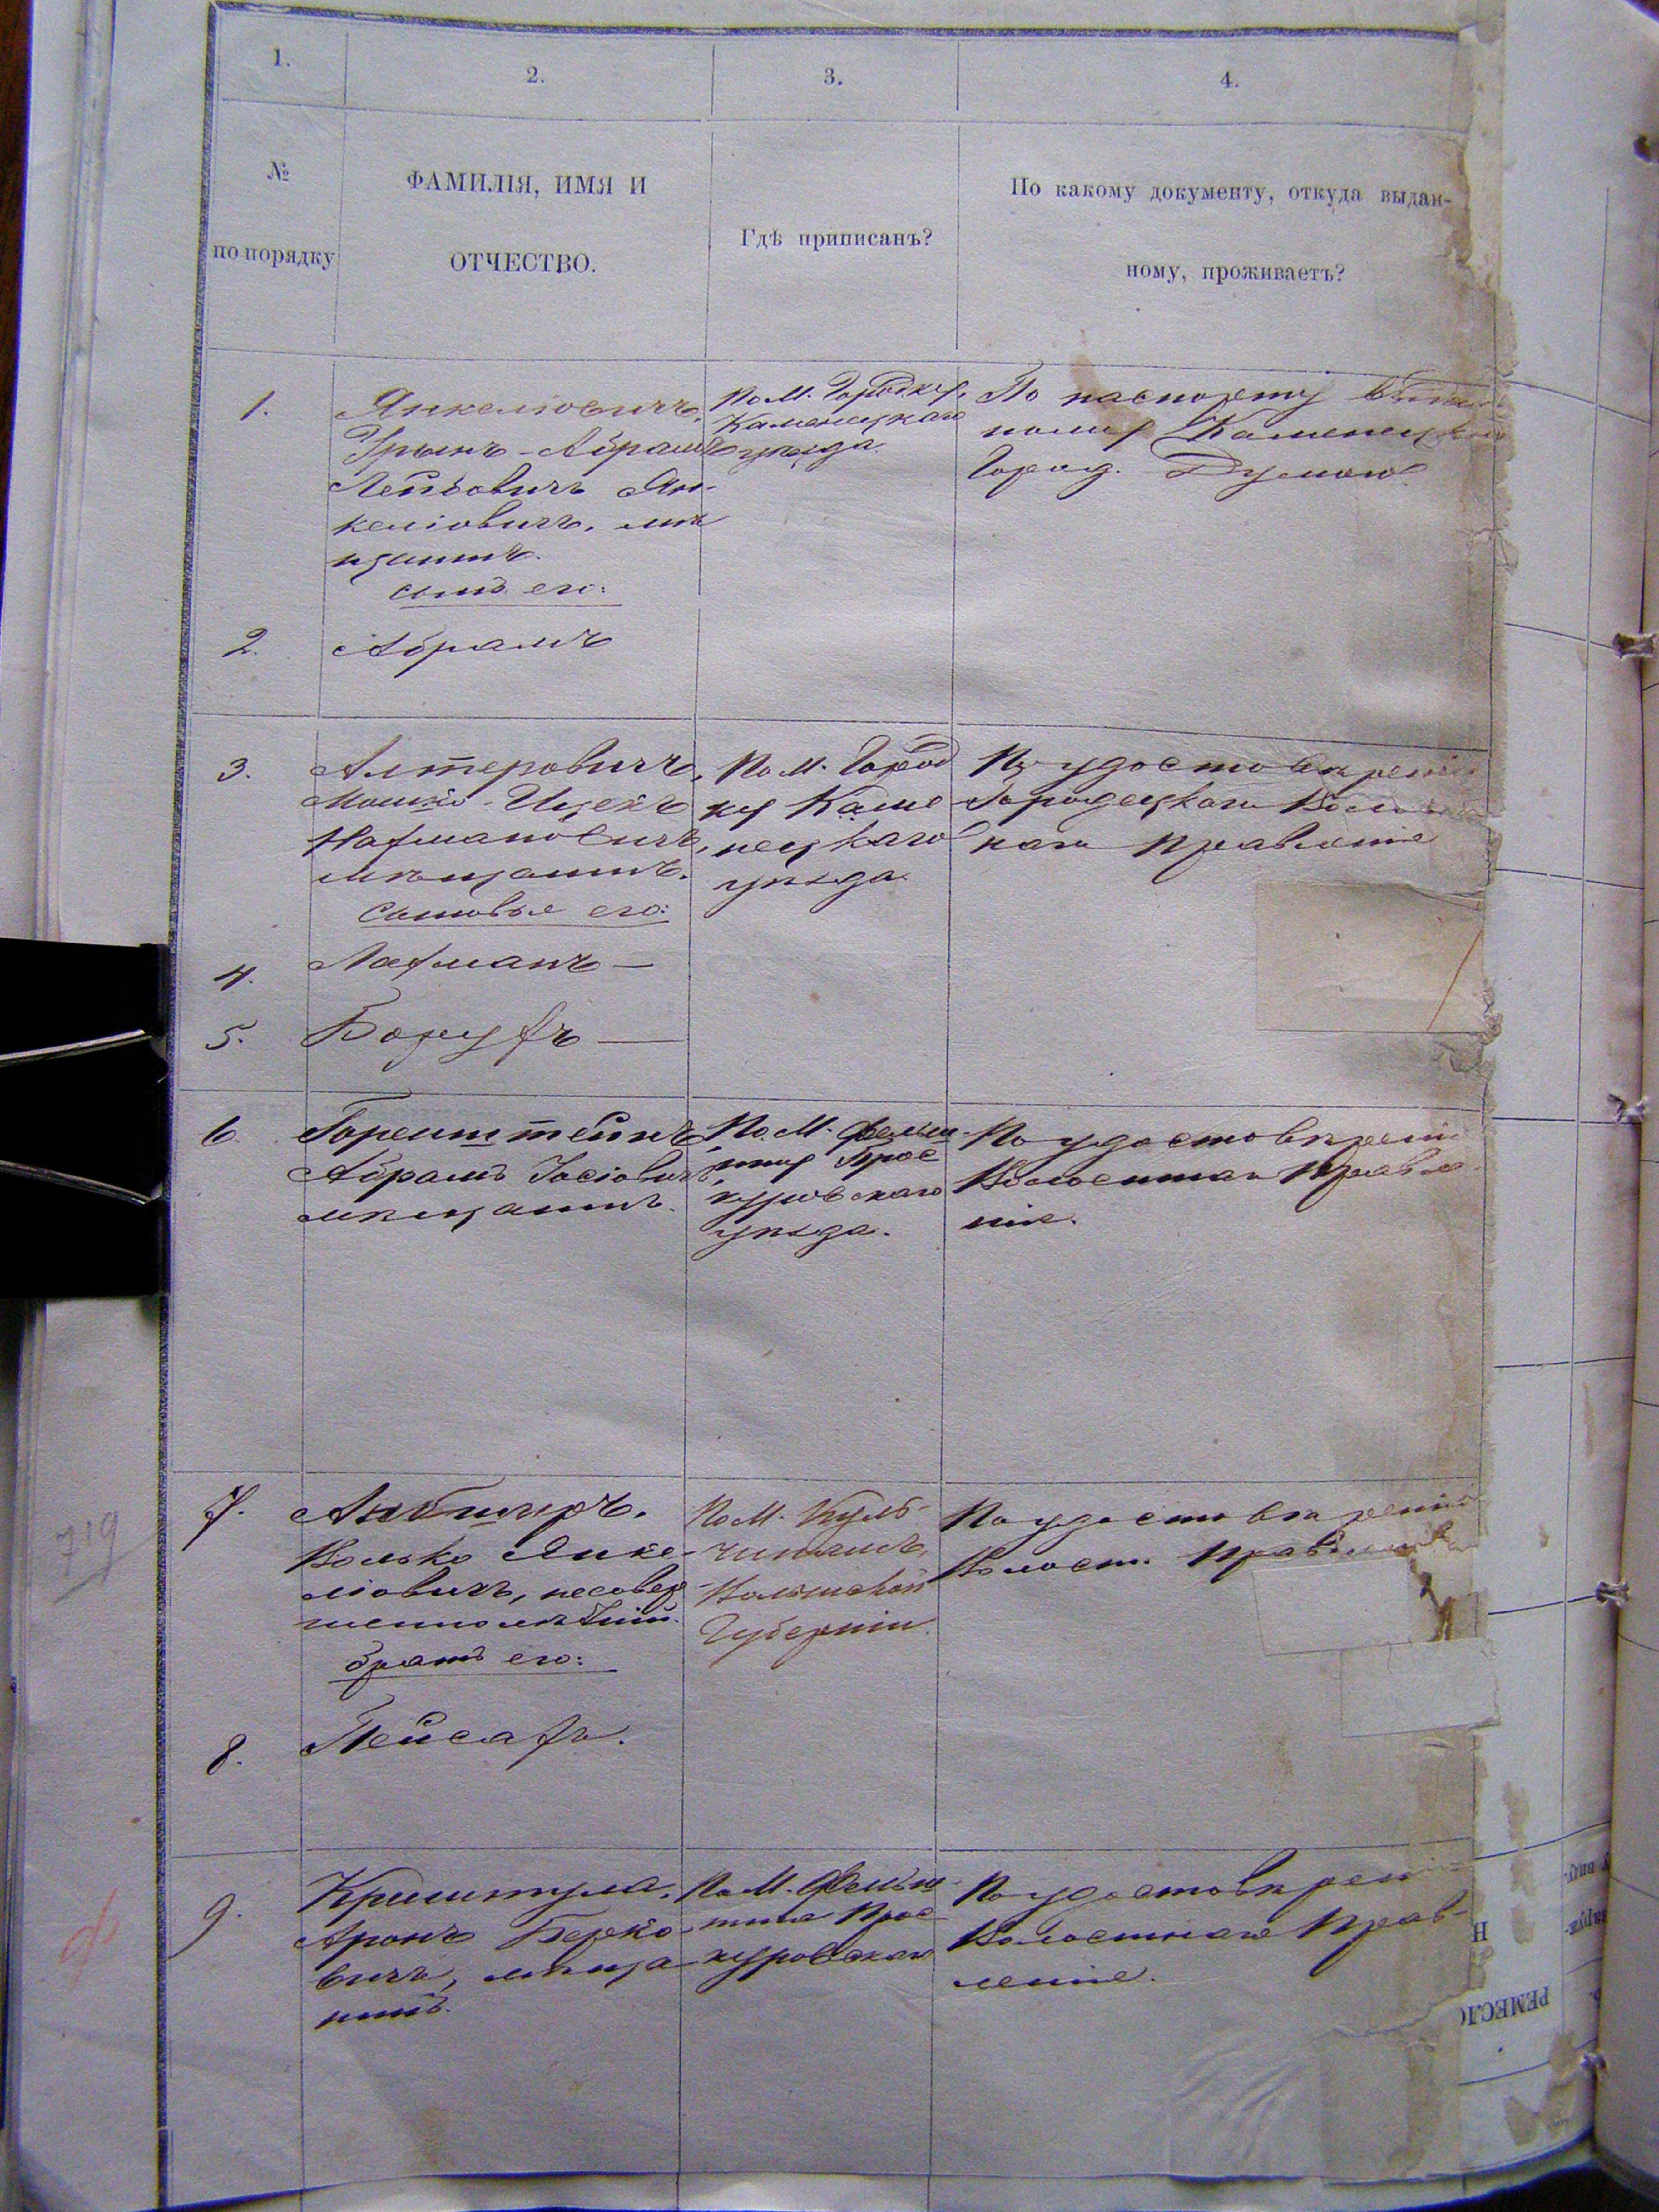 1.
2.
3.
4.
№
по порядку
ФАМИЛІЯ, ИМЯ И
ОТЧЕСТВО.
Гдѣ приписанъ?
По какому документу, откуда выдан-
ному, проживаетъ?
1.
Янкеліовичъ,
Грынъ-Абрамъ
Лейбовичъ Ян-
келіовичъ, мѣ
щанинъ.
сынъ его:
По М. Городку,
Каменецкаго
уѣзда.
По паспорту
Каменецкою
Город. Думою
2.
Абрамъ
3.
Алтеровичъ,
Мошко-Ицекъ
Нахмановичъ,
мѣщанинъ.
сыновья его:
По М. Город
ку Каме
нецкаго
уѣзда.
По удостовѣренію
Городецкаго Волост
наго Правленія
4.
Нахманъ —
5.
Борухъ —
6.
Горенштейнъ,
Абрамъ Іосіовичъ,
мѣщанинъ.
По М. Фельш-
тину Прос
куровскаго
уѣзда.
По удостовѣренію
Волостнаго Правле-
нія.
7.
Волько Янке-
ліовичъ, несовер-
шеннолѣтній.
братъ его:
По М. Куль-
чинамъ,
Волынской
Губерніи.
По удостовѣренію
Волостн. Правленія
8.
Пейсахъ.
9.
Аронъ Берко-
вичъ, мѣща
нинъ.
По М. Фельш-
тина Прос-
куровскаго
По удостовѣренію
Волостнаго Прав-
ленія.
719
Н
РЕМЕСЛ